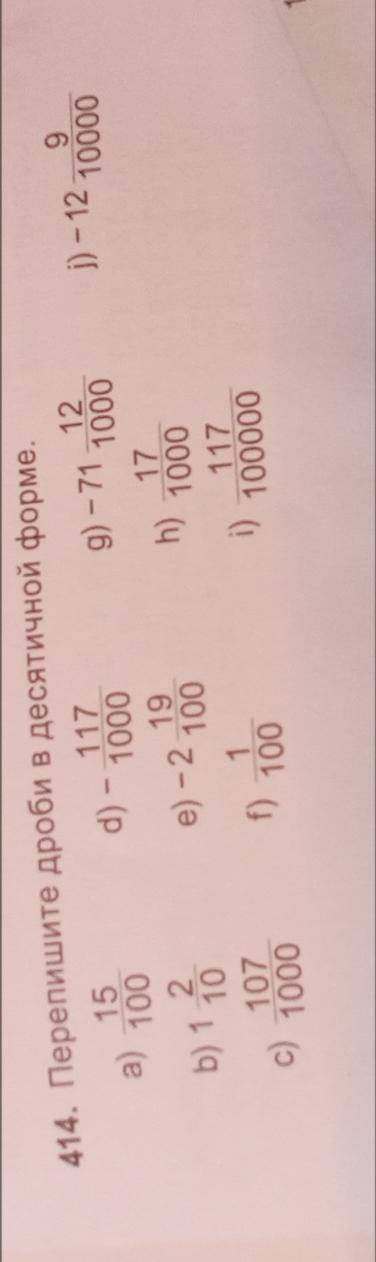 414. Перепишите дроби в десятичной форме.
a) 15/100
b) 1 2/10
c) 107/1000
d) − 117/1000
e) − 2 19/100
f) 1/100
g) − 71 12/1000
h) 17/1000
i) 117/100000
j) − 12 9/10000